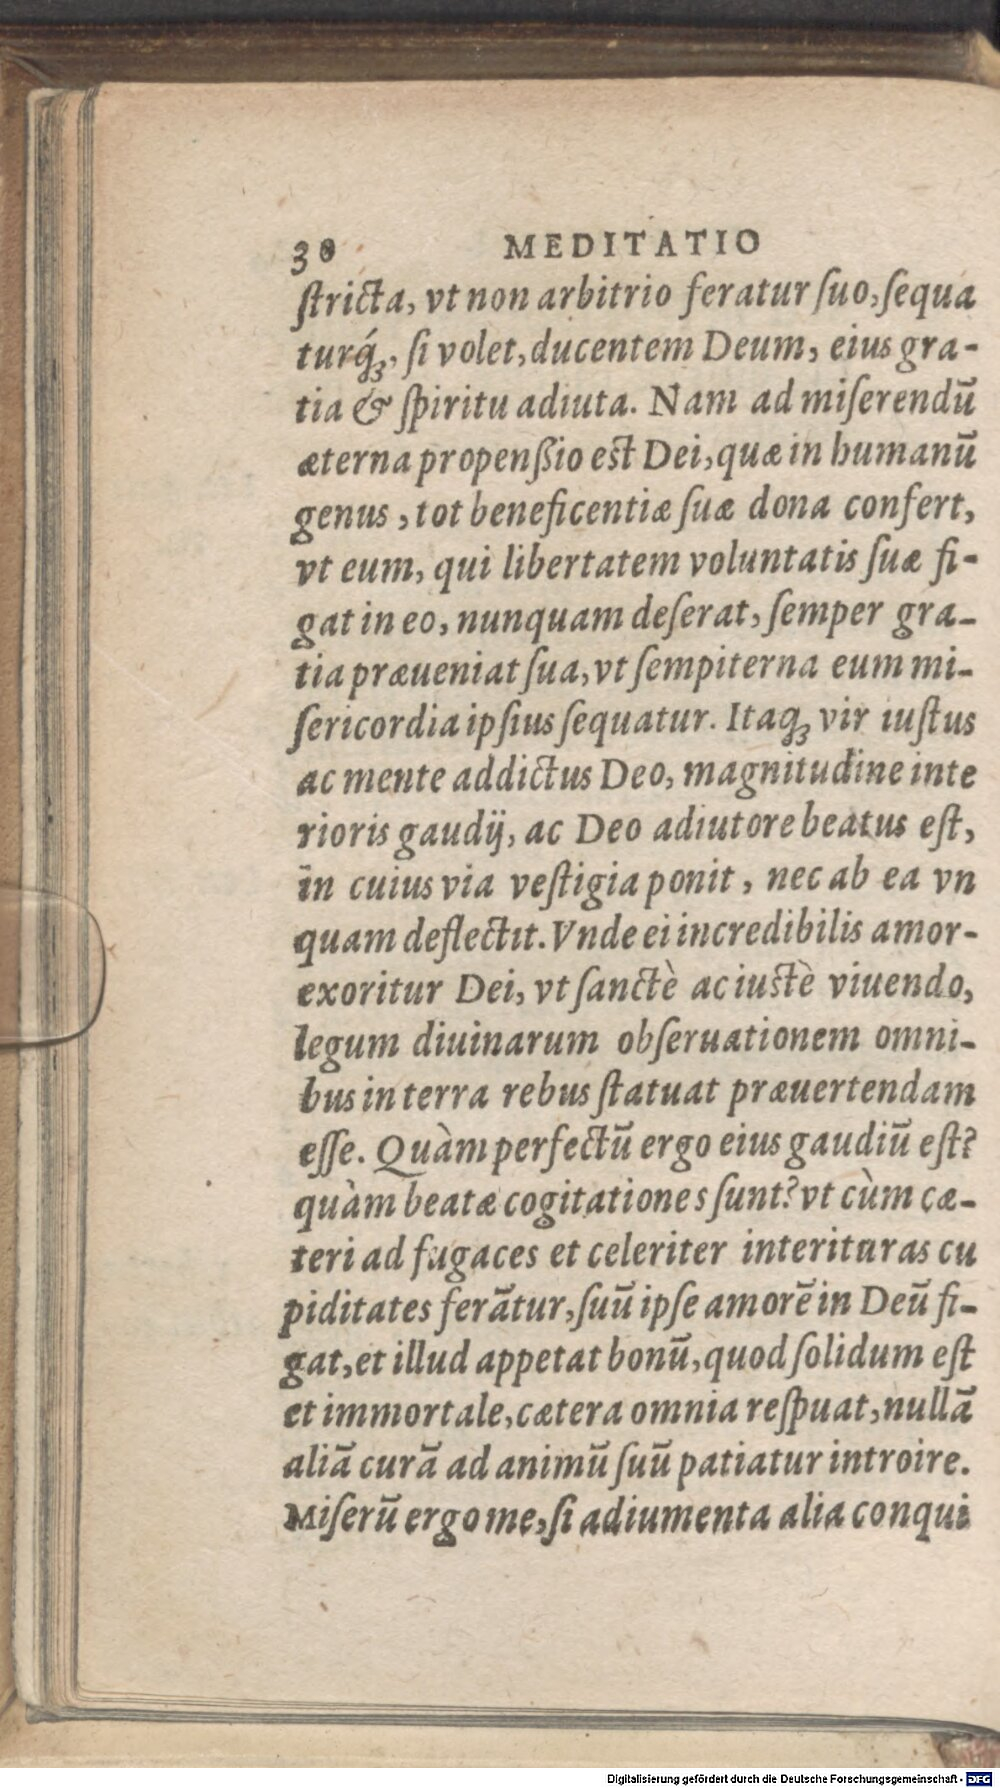 30 MEDITATIO
ſtricta, vt non arbitrio feratur ſuo, ſequa
turq́ꝫ, ſi volet, ducentem Deum, eius gra-
tia & ſpiritu adiuta. Nam ad miſerendū
æterna propenßio est Dei, quæ in humanū
genus, tot beneficentiæ ſuæ dona confert,
vt eum, qui libertatem voluntatis ſuæ fi-
gat in eo, nunquam deſerat, ſemper gra-
tia præueniat ſua, vt ſempiterna eum mi-
ſericordia ipſius ſequatur. Itaqꝫ vir iuſtus
ac mente addictus Deo, magnitudine inte
rioris gaudij, ac Deo adiutore beatus eſt,
in cuius via veſtigia ponit, nec ab ea vn
quam deflectit. Vnde ei incredibilis amor-
exoritur Dei, vt ſanctè ac iustè viuendo,
legum diuinarum obſeruationem omni-
bus in terra rebus ſtatuat præuertendam
eſſe. Quàm perfectū ergo eius gaudiū eſt?
quàm beatæ cogitationes ſunt? vt cùm cæ-
teri ad fugaces et celeriter interituras cu
piditates ferātur, ſuū ipſe amorē in Deū fi-
gat, et illud appetat bonū, quod ſolidum eſt
et immortale, cætera omnia reſpuat, nullā
aliā curā ad animū ſuū patiatur introire.
Miſerū ergo me, ſi adiumenta alia conqui
Digitalisierung gefördert durch die Deutsche Forschungsgemeinschaft - DFG